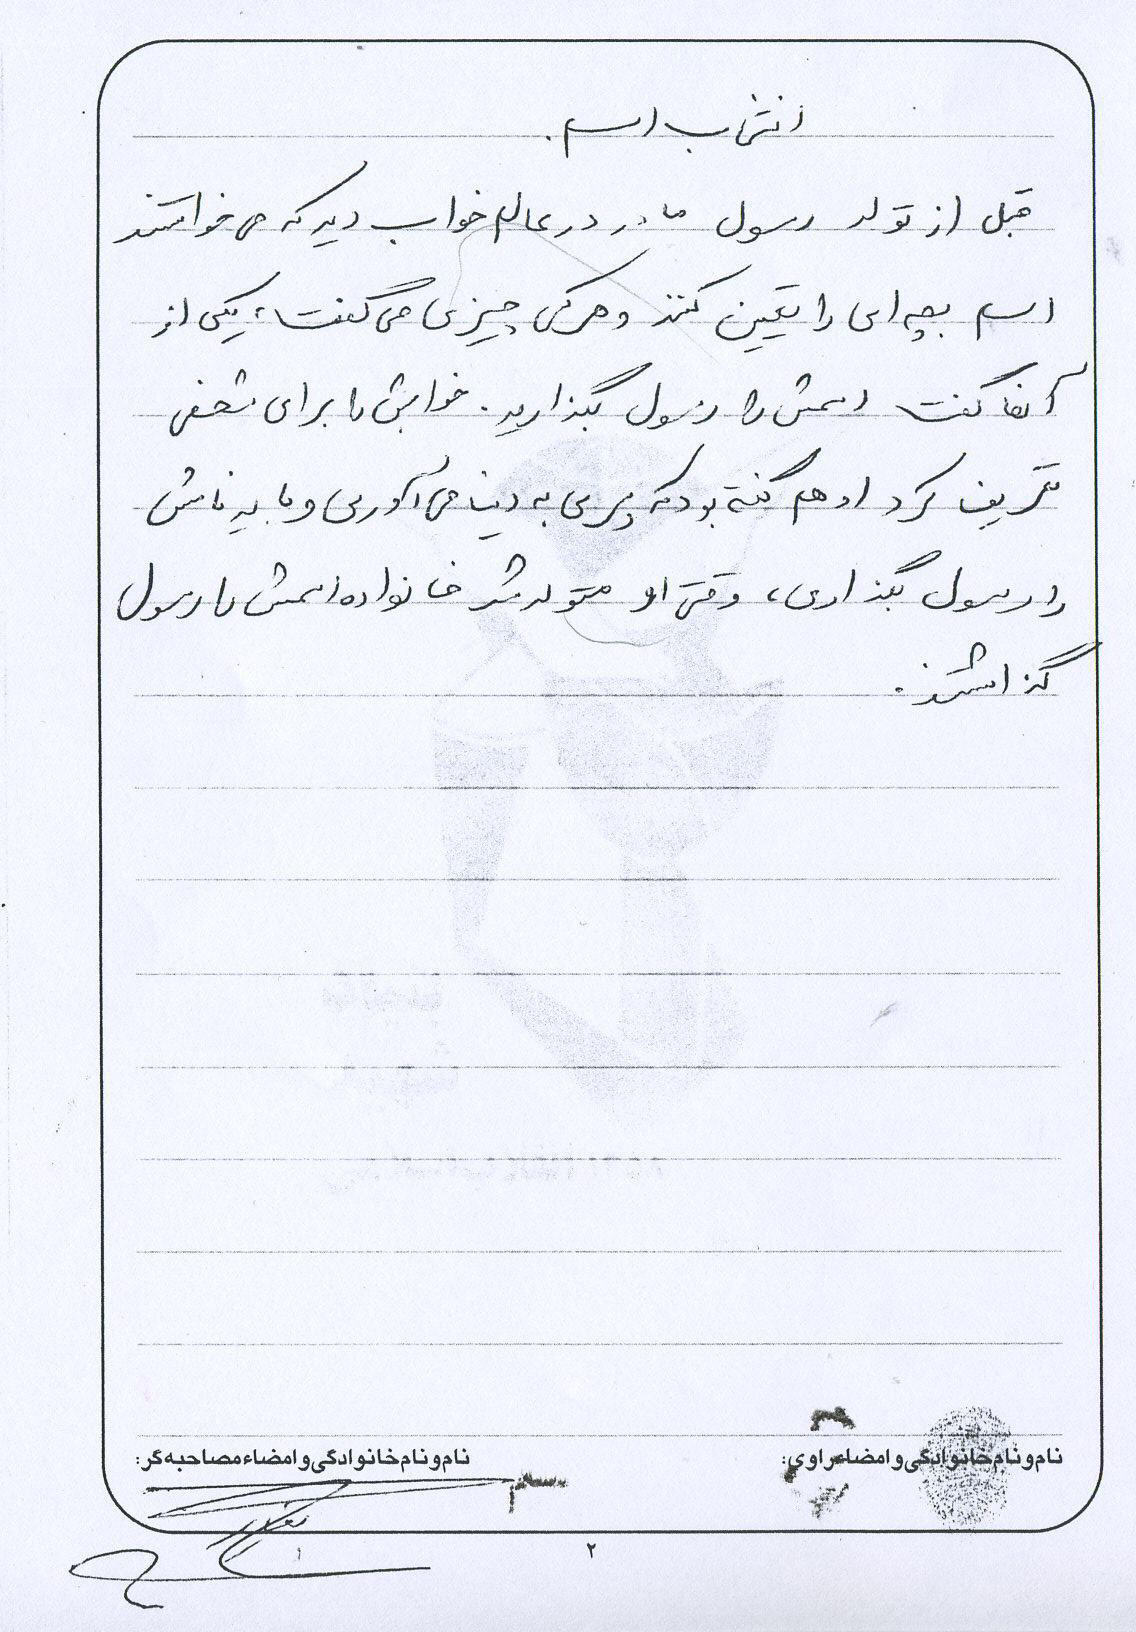 انتخاب اسم.
قبل از تولد رسول مادر در عالم خواب دید که می خواستند
اسم بچه ای را تعیین کنند و هر کس چیزی می گفت، یکی از
آنها گفت اسمش را رسول بگذارید. خوابش را برای شخصی
تعریف کرد او هم گفته بود که پسری به دنیا می آوری و باید نامش
را رسول بگذاری، وقتی او متولد شد خانواده اسمش را رسول
گذاشتند.
نام و نام خانوادگی و امضاء راوی:
نام و نام خانوادگی و امضاء مصاحبه گر:
۲